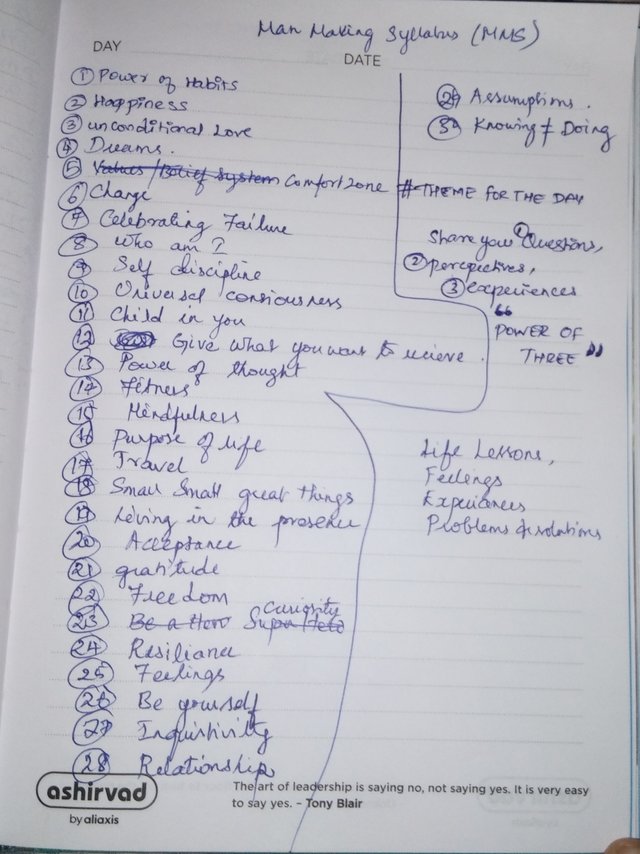 Man Making Syllabus (MMS)
DAY
DATE
① Power of Habits
② Happiness
③ unconditional Love
④ Dreams.
⑤ Values / Belief System Comfort zone
⑥ Change
⑦ Celebrating Failure
⑧ Who am I
⑨ Self discipline
⑩ Universal consiousness
⑪ Child in you
⑫ Give what you want to recieve.
⑬ Power of thought
⑭ Fitness
⑮ Mindfulness
⑯ Purpose of life
⑰ Travel
⑱ Small Small great things
⑲ Living in the presence
⑳ Acceptance
㉑ gratitude
㉒ Freedom
㉓ Be a Hero Super Hero Curiosity
㉔ Resiliance
㉕ Feelings
㉖ Be yourself
㉗ Inquistivity
㉘ Relationship
㉙ Assumptions.
㉚ Knowing ≠ Doing
# THEME FOR THE DAY
Share your ① Questions,
② perspectives,
③ experiences
"POWER OF
THREE"
Life Lessons,
Feelings
Experiences
Problems & solutions
ashirvad
by aliaxis
The art of leadership is saying no, not saying yes. It is very easy
to say yes. – Tony Blair